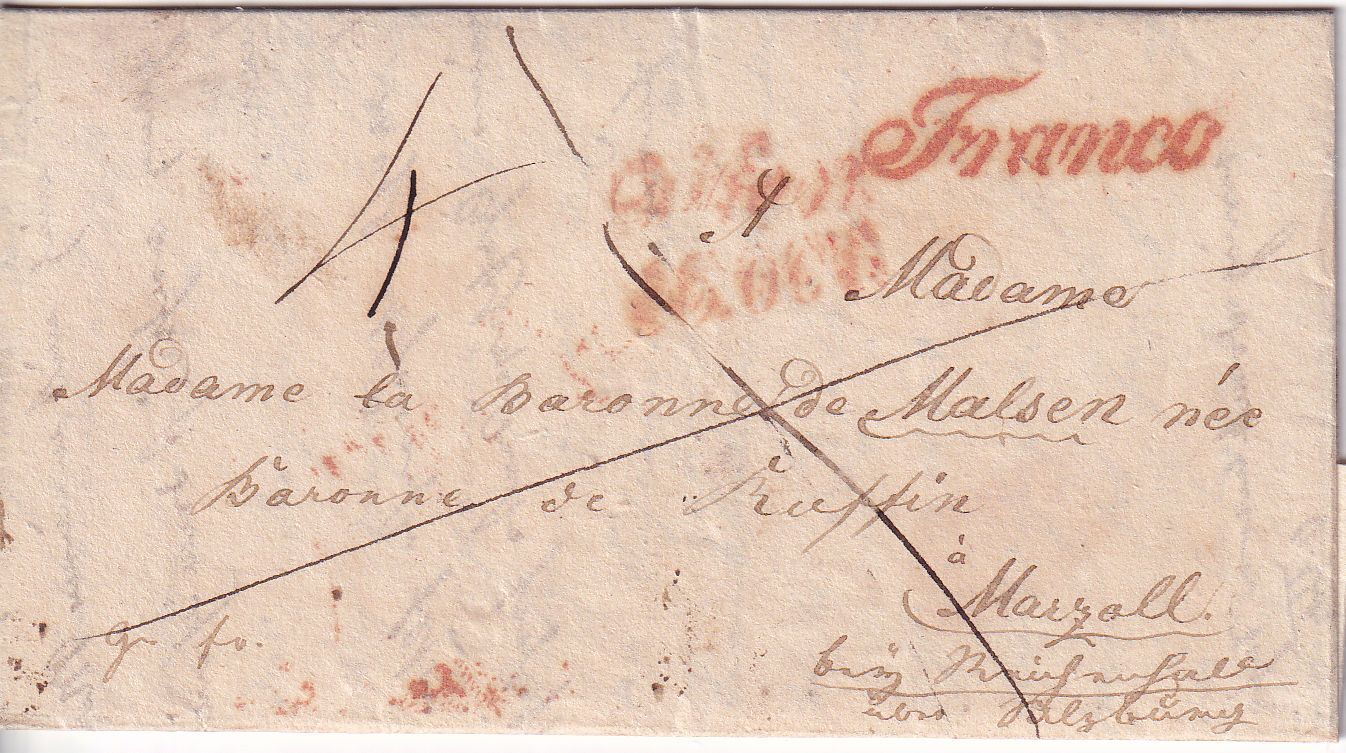 Franco
4
OCT
A
Madame
Madame la Baronne de Malsen née
Baronne de Ruffin
à
Marzoll.
gz fr.
bey Reichenhall
über Salzburg